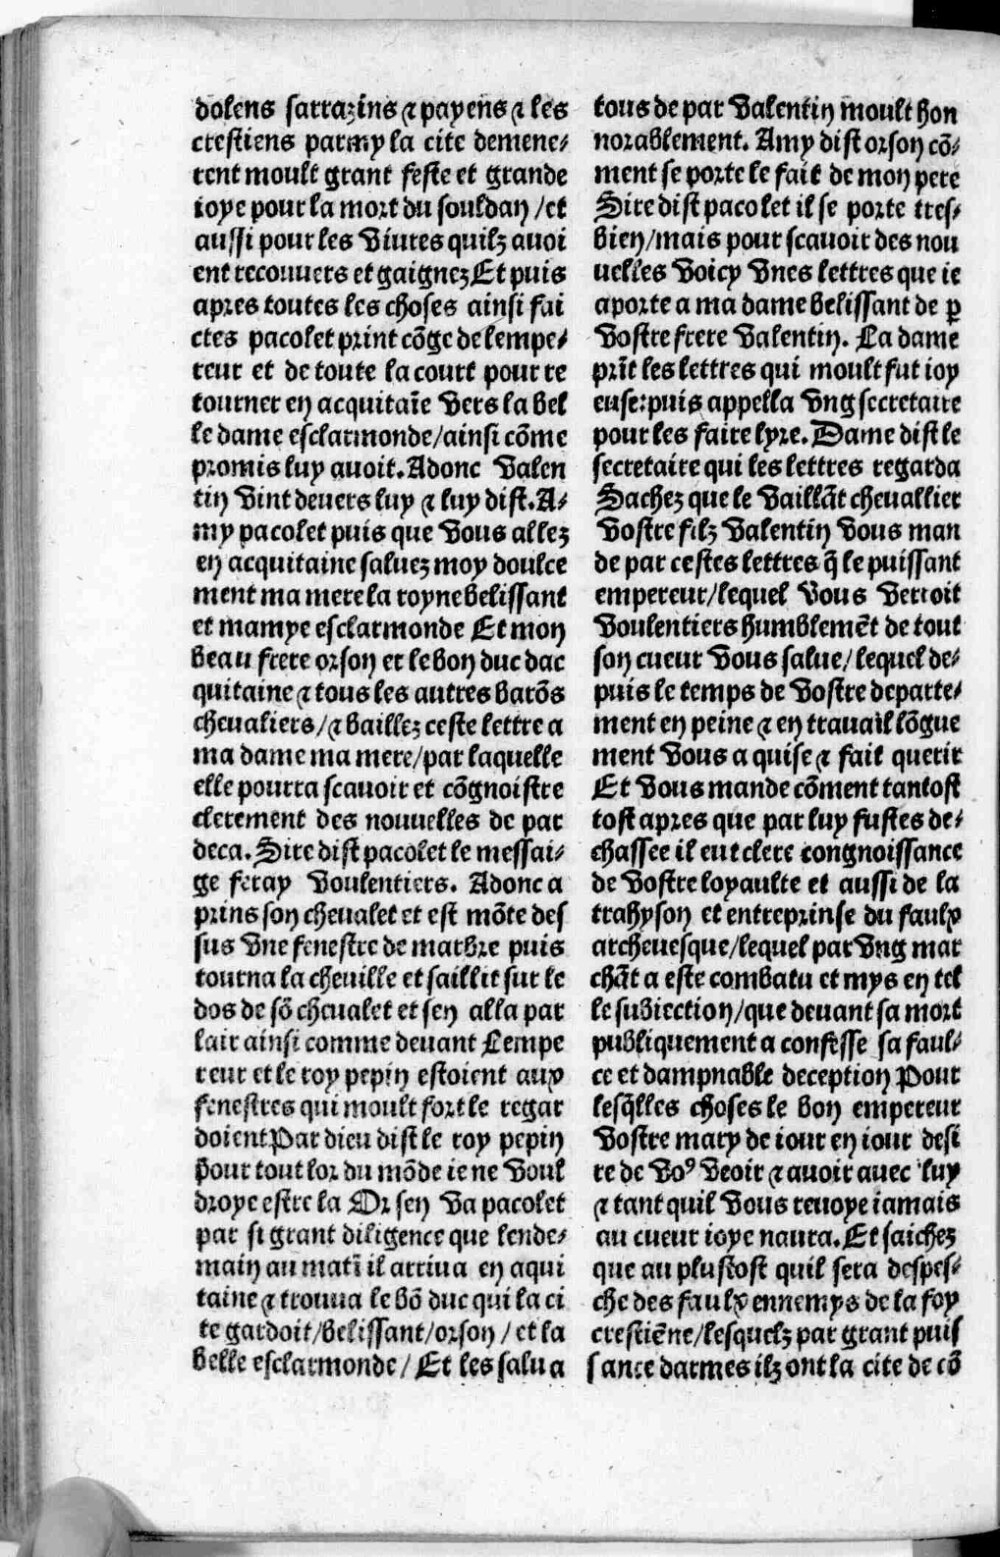 dolens sarrazins ⁊ payens ⁊ les
crestiens parmy la cite demene⸗
rent moult grant feste et grande
ioye pour la mort du souldan /et
aussi pour les viures quilz auoi
ent recouuers et gaignez Et puis
apres toutes les choses ainsi fai
ctes pacolet print cõge de lempe⸗
reur et de toute la court pour re
tourner en acquitaĩe vers la bel
le dame esclarmonde/ainsi cõme
promis luy auoit. Adonc valen
tin vint deuers luy ⁊ luy dist. A⸗
my pacolet puis que vous allez
en acquitaine saluez moy doulce
ment ma mere la royne belissant
et mamye esclarmonde Et mon
beau frere orson et le bon duc dac
quitaine ⁊ tous les autres barõs
cheualiers/⁊ baillez ceste lettre a
ma dame ma mere/par laquelle
elle pourra scauoir et cõgnoistre
clerement des nouuelles de par
deca. Sire dist pacolet le messai⸗
ge feray voulentiers. Adonc a
prins son cheualet et est mõte des
sus vne fenestre de marbre puis
tourna la cheuille et saillit sur le
dos de sõ cheualet et sen alla par
lair ainsi comme deuant Lempe
reur et le roy pepin estoient aux
fenestres qui moult fort le regar
doient Par dieu dist le roy pepin
pour tout lor du mõde ie ne voul
droye estre la Or sen va pacolet
par si grant diligence que lende⸗
main au matĩ il arriua en aqui
taine ⁊ trouua le bõ duc qui la ci
te gardoit/belissant/orson / et la
belle esclarmonde / Et les salua
tous de par valentin moult hon
norablement. Amy dist orson cõ⸗
ment se porte le fait de mon pere
Sire dist pacolet il se porte tres⸗
bien/mais pour scauoir des nou
uelles voicy vnes lettres que ie
aporte a ma dame belissant de ꝑ
vostre frere valentin. La dame
prĩt les lettres qui moult fut ioy
euse:puis appella vng secretaire
pour les faire lyre. Dame dist le
secretaire qui les lettres regarda
Sachez que le vaillãt cheuallier
vostre filz valentin vous man
de par cestes lettres q̃ le puissant
empereur/lequel vous verroit
voulentiers humblemẽt de tout
son cueur vous salue/lequel de⸗
puis le temps de vostre departe⸗
ment en peine ⁊ en trauail lõgue
ment vous a quise ⁊ fait querir
Et vous mande cõment tantost
tost apres que par luy fustes de⸗
chassee il eut clere congnoissance
de vostre loyaulte et aussi de la
trahyson et entreprinse du faulx
archeuesque/lequel par vng mar
chãt a este combatu et mys en tel
le subiection/que deuant sa mort
publiquement a confesse sa faul⸗
ce et dampnable deception Pour
lesq̃lles choses le bon empereur
vostre mary de iour en iour desi
re de voꝰ veoir ⁊ auoir auec luy
⁊ tant quil vous reuoye iamais
au cueur ioye naura. Et saichez
que au plustost quil sera despes⸗
che des faulx ennemys de la foy
crestiẽne/lesquelz par grant puis
sance darmes ilz ont la cite de cõ